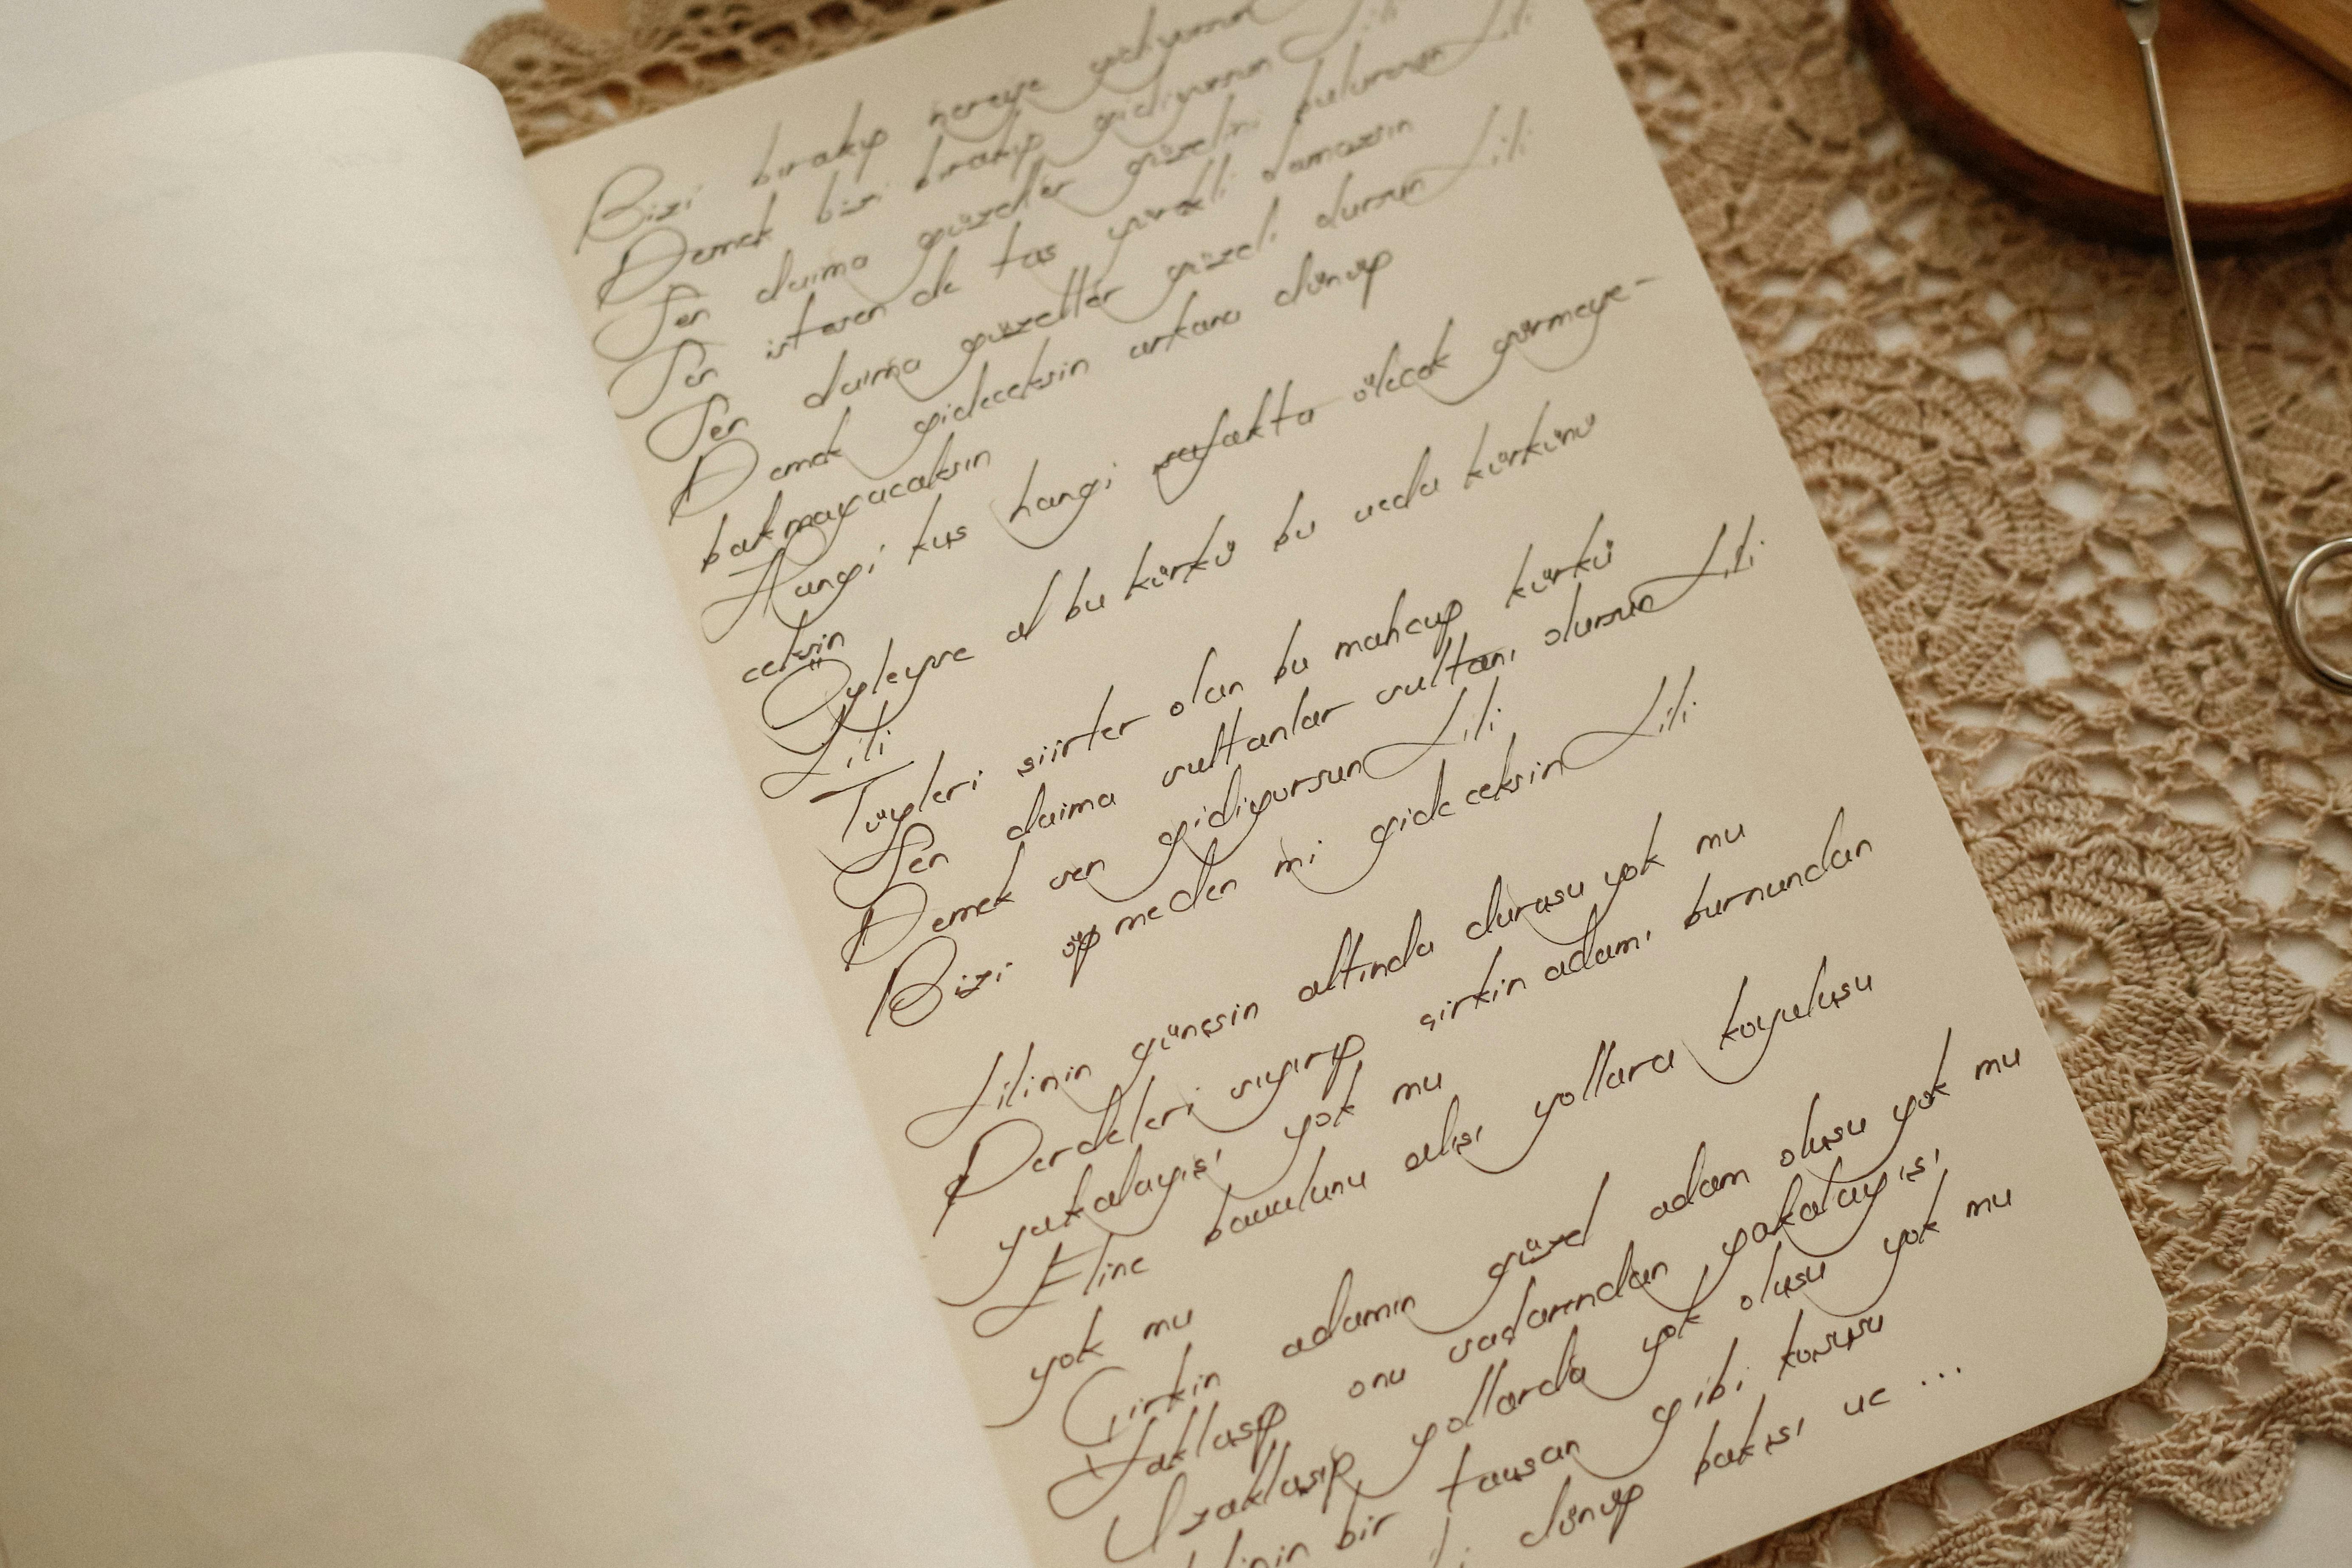 Bizi bırakıp nereye gidiyorsun Lili
Demek bizi bırakıp gidiyorsun Lili
Sen daima güzeller güzelini bulursun Lili
Sen istesen de taş yürekli olamazsın
Sen daima güzeller güzeli dursun Lili
Demek gideceksin arkana dönüp
bakmayacaksın
Hangi kuş hangi şafakta ölecek görmeye-
ceksin
Öyleyse al bu kürkü bu veda kürkünü
Lili
Tüyleri şiirler olan bu mahcup kürkü
Sen daima sultanlar sultanı olursun Lili
Demek sen gidiyorsun Lili
Bizi öpmeden mi gideceksin Lili
Lilinin güneşin altında durusu yok mu
Perdeleri sıyırıp çirkin adamı burnundan
yakalayışı yok mu
Eline bavulunu alışı yollara koyuluşu
yok mu
Çirkin adamın güzel adam oluşu yok mu
Yaklaşıp onu saçlarından yakalayışı
Uzaklaşıp yollarda yok oluşu yok mu
linin bir tavşan gibi koşuşu
dönüp bakışı ve ...